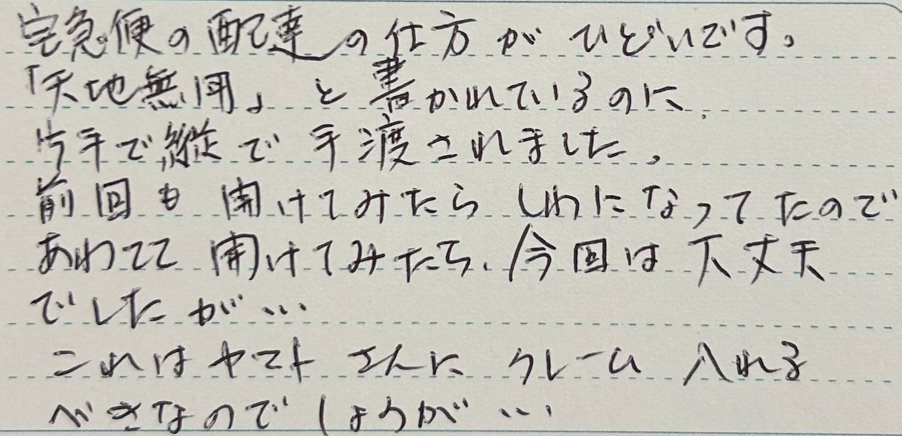 宅急便の配達の仕方がひどいです。
「天地無用」と書かれているのに
片手で縦で手渡されました。
前回も開けてみたらしわになってたので
あわてて開けてみたら、今回は大丈夫
でしたが…
これはヤマトさんにクレーム入れる
べきなのでしょうか…